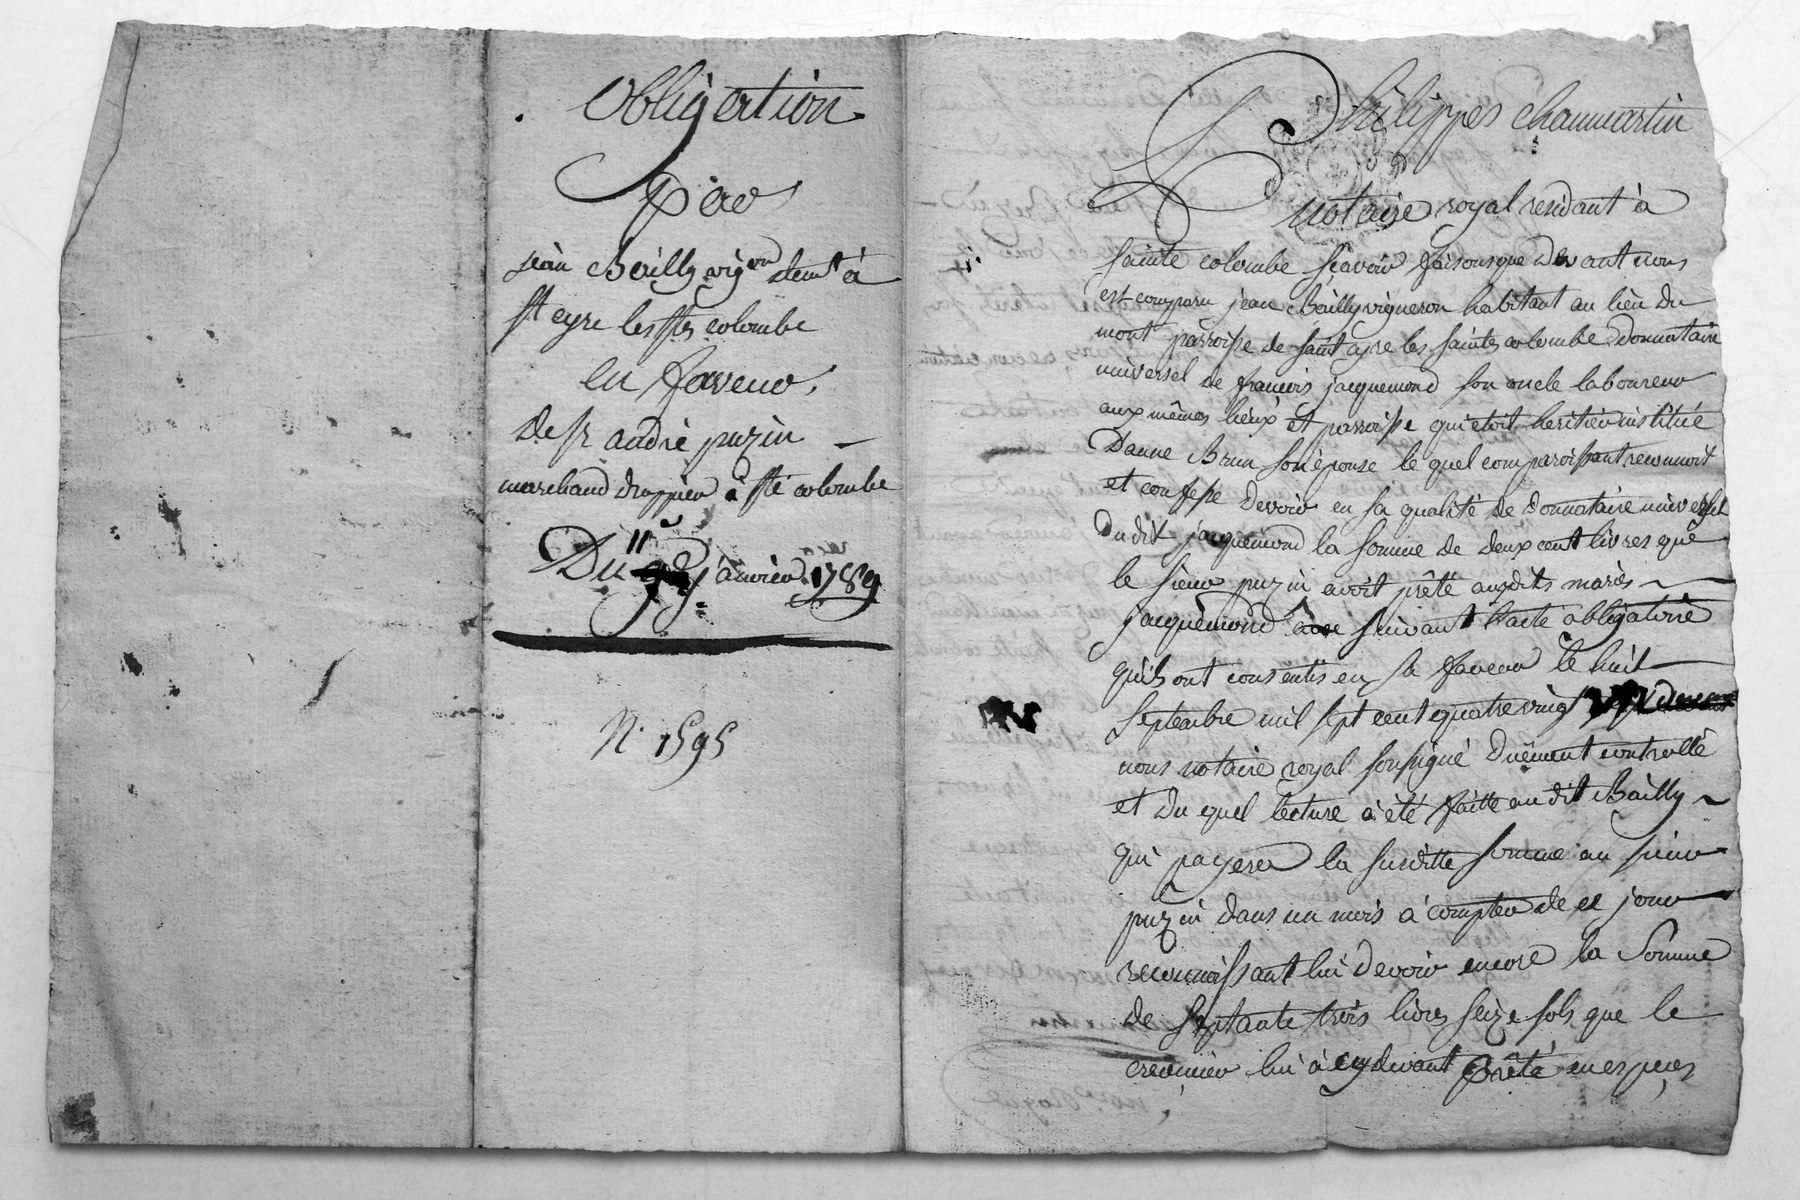 obligation
par
jean Bailly vigron demt à
st cyre les ste colombe
en faveur
de sr andré puzin
marchand drappier à ste colombe
Du 11 janvier 1789
N. 1595
Philippes chaumartin
notaire royal rendant à
sainte colombe sçavoir faisons que devant nous
est comparu jean Bailly vigneron habitant au lieu du
mont parroisse de saint cyre les sainte colombe donnataire
universel de francois jacquemond son oncle laboureur
aux mêmes lieux et parroisse qui étoit heritier institué
Danne Brun son épouse le quel comparoissant reconnoit
et confesse devoir en sa qualité de donnataire universel
Du dit jacquemond la somme de deux cent livres que
le sieur puzin avoit prêté auxdits mariés
jacquemond suivant l'acte obligatoire
quils ont consentis en sa faveur le huit
septembre mil sept cent quatre vingt
nous notaire royal soussigné Duëment controllé
et du quel lecture à été faitte au dit Bailly
qui payera la susditte somme au sieur
puzin dans un mois à compter de ce jour
reconnoissant lui devoir encore la somme
de septante trois livres seize sols que le
creancier lui à cy devant prêté en especes